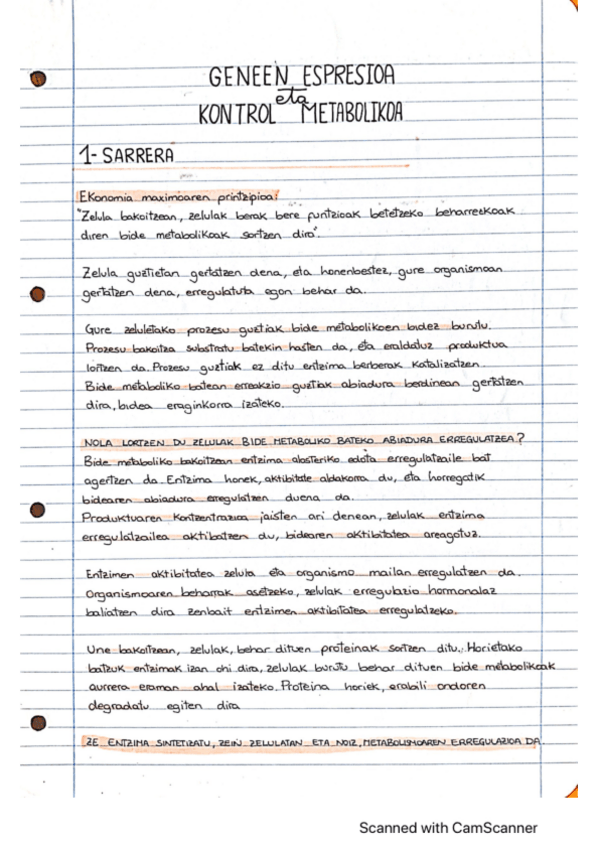 GENEEN ESPRESIOA
eta
KONTROL METABOLIKOA
1- SARRERA
Ekonomia maximoaren printzipioa:
"Zelula bakoitzean, zelulak berak bere funtzioak betetzeko beharrezkoak
diren bide metabolikoak sortzen dira".
Zelula guztietan gertatzen dena, eta honenbestez, gure organismoan
gertatzen dena, erregulatuta egon behar da.
Gure zeluletako prozesu guztiak bide metabolikoen bidez burutu.
Prozesu bakoitza substratu batekin hasten da, eta eraldatuz produktua
lortzen da. Prozesu guztiak ez ditu entzima berberak katalizatzen.
Bide metaboliko batean erreakzio guztiak abiadura berdinean gertatzen
dira, bidea eraginkorra izateko.
NOLA LORTZEN DU ZELULAK BIDE METABOLIKO BATEKO ABIADURA ERREGULATZEA?
Bide metaboliko bakoitzean entzima alosteriko edota erregulatzaile bat
agertzen da. Entzima honek, aktibitate aldakorra du, eta horregatik
bidearen abiadura erregulatzen duena da.
Produktuaren kontzentrazioa jaisten ari denean, zelulak entzima
erregulatzailea aktibatzen du, bidearen aktibitatea areagotuz.
Entzimen aktibitatea zelula eta organismo mailan erregulatzen da.
Organismoaren beharrak asetzeko, zelulak erregulazio hormonalaz
baliatzen dira zenbait entzimen aktibitatea erregulatzeko.
Une bakoitzean, zelulak, behar dituen proteinak sortzen ditu. Horietako
batzuk entzimak izan ohi dira, zelulak burutu behar dituen bide metabolikoak
aurrera eraman ahal izateko. Proteina horiek, erabili ondoren
degradatu egiten dira
ZE ENTZIMA SINTETIZATU, ZEIN ZELULATAN ETA NOIZ, METABOLISMOAREN ERREGULAZIOA DA.
Scanned with CamScanner